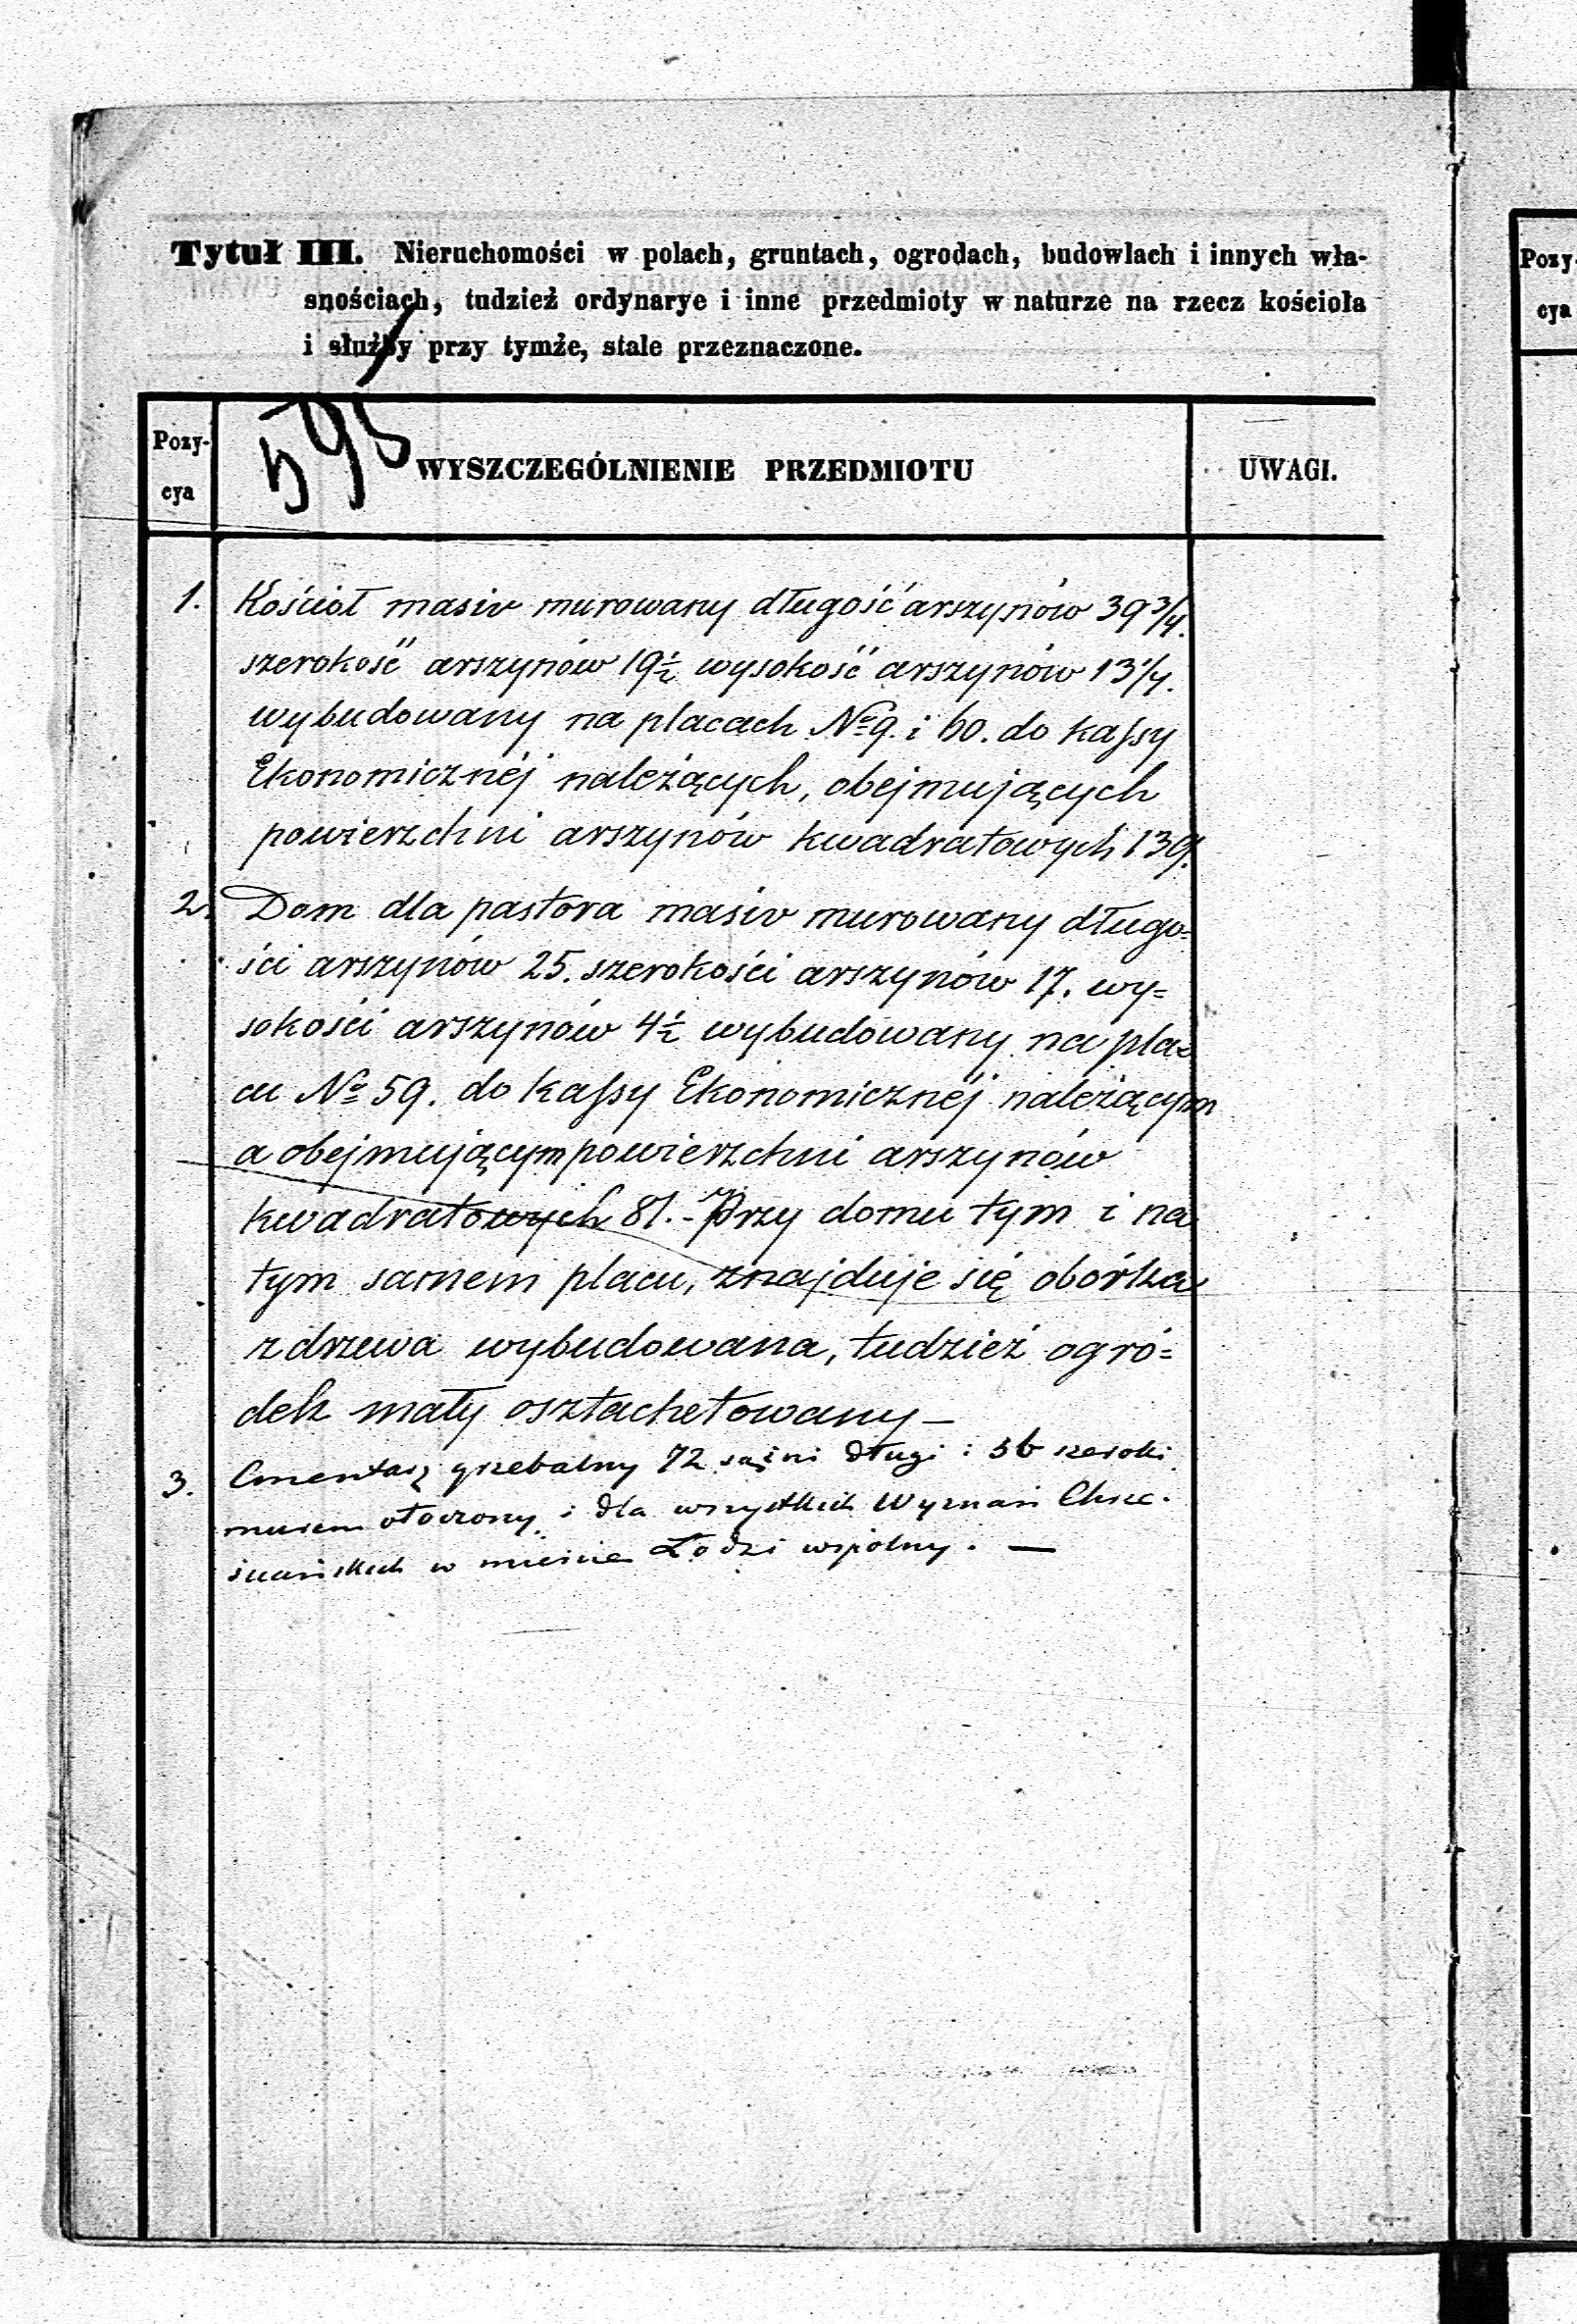 Tytuł III. Nieruchomości w polach, gruntach, ogrodach, budowlach i innych wła-
snościach, tudzież ordynarye i inne przedmioty w naturze na rzecz kościoła
i służby przy tymże, stale przeznaczone.
Pozy-
cya
WYSZCZEGÓLNIENIE PRZEDMIOTU
UWAGI.
1. Kościoł masiv murowany długość arszynów 39 3/4.
szerokość arszynów 19 1/2 wysokość arszynów 13 1/4.
wybudowany na placach No 9. i 60. do kassy
Ekonomicznéj należących, obejmujących
powierzchni arszynów kwadratowych 139.
2. Dom dla pastora masiv murowany długo=
ści arszynów 25. szerokości arszynów 17. wy=
sokości arszynów 4 1/2 wybudowany na pla=
cu No 59. do kassy Ekonomicznéj należącym
a obejmującym powierzchni arszynów
kwadratowych 81. - Przy domu tym i na
tym samem placu, znajduje się obórka
z drzewa wybudowana, tudzież ogró=
dek mały osztachetowany —
3. Cmentarz grzebalny 72 sążni długi i 56 szeroki
murem otoczony i dla wszystkich Wyznań Chrze-
ściańskich w mieście Łodzi wspólny. —
Pozy-
cya